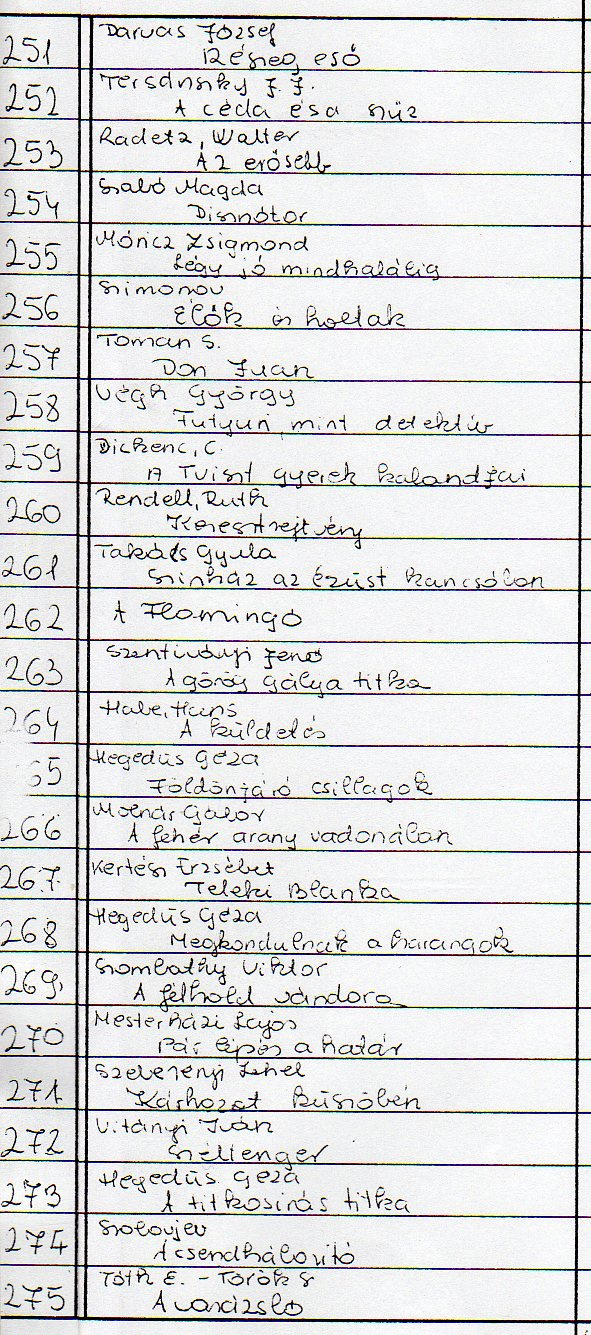 251 Darvas József
Részeg eső
252 Tersánszky J. J.
A céda és a szűz
253 Radetz, Walter
Az erősebb
254 Szabó Magda
Disznótor
255 Móricz Zsigmond
Légy jó mindhalálig
256 Szimonov
Élők és holtak
257 Toman S.
Don Juan
258 Végh György
Futyuri, mint detektív
259 Dickenc, C.
A Tviszt gyerek kalandjai
260 Rendell, Ruth
Keresztrejtvény
261 Takács Gyula
Szinház az Ezüst Kancsóban
262 A Flamingó
263 Szentiványi Jenő
A görög gálya titka
264 Habe, Hans
A küldetés
65 Hegedüs Géza
Földönjáró csillagok
266 Molnár Gábor
A fehér arany vadonában
267. Kertész Erzsébet
Teleki Blanka
268 Hegedüs Géza
Megkondulnak a harangok
269. Szombathy Viktor
A félhold vándora
270 Mesterházi Lajos
Pár lépés a határ
271 Szeberényi Lehel
Kárhozat küszöbén
272 Vitányi Iván
Széltenger
273 Hegedüs Géza
A titkosirás titka
274 Szolovjev
A csendháboritó
275 Tóth E. - Török S
A varázsló